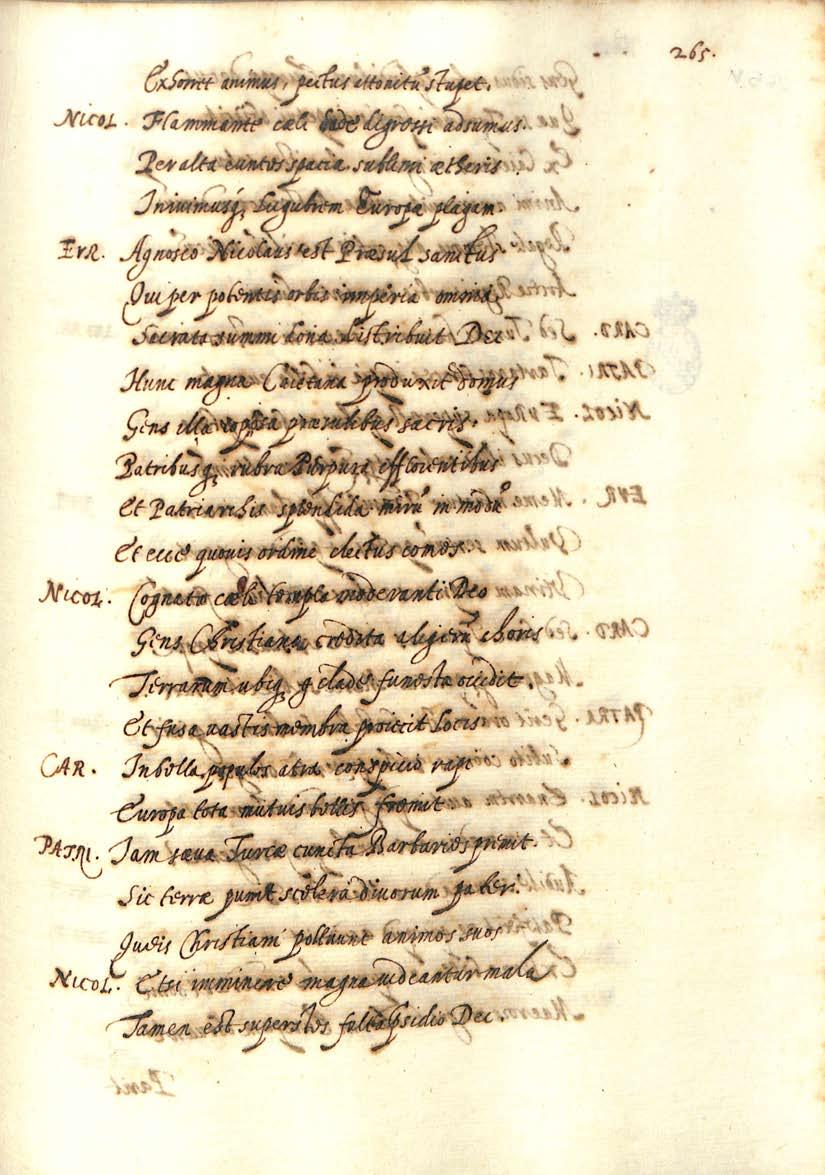 265.
Exhorret animus, pectus attonitũ stupet.
NICOL. Flammante cæli sede digressi adsumus
Per alta euntes spacia sublimi ætheris
Inivimusq; lugubrem Europæ plagam
EVR. Agnosco Nicolaus est Præsul sanctus
Qui per potentis orbis imperia omnia
Sacrata summi dona distribuit Dei
Hunc magna Caietana produxit domus
Gens illa præsulibus sacris.
Patribusq; rubra Purpura efflorentibus
Et Patriarchis splendida mirũ in modũ
Et ecce quovis ordine electus comes.
NICOL. Cognata cæli templa moderanti Deo
Gens Christiana credita aligerũ choris
Terrarum ubiq; clades funesta occidit.
Et fusa vastis membra proiecit locis
CAR. In bella populos atra conspicio rapi
Europa tota mutuis bellis fremit
PATRI. Iam sæva Turcæ cuncta Barbaries premit.
Sic terræ punit scelera divorum pater.
Queis Christiani polluunt animos suos
NICOL. Etsi imminere magna videantur mala
Tamen est superstes fulta Dei.